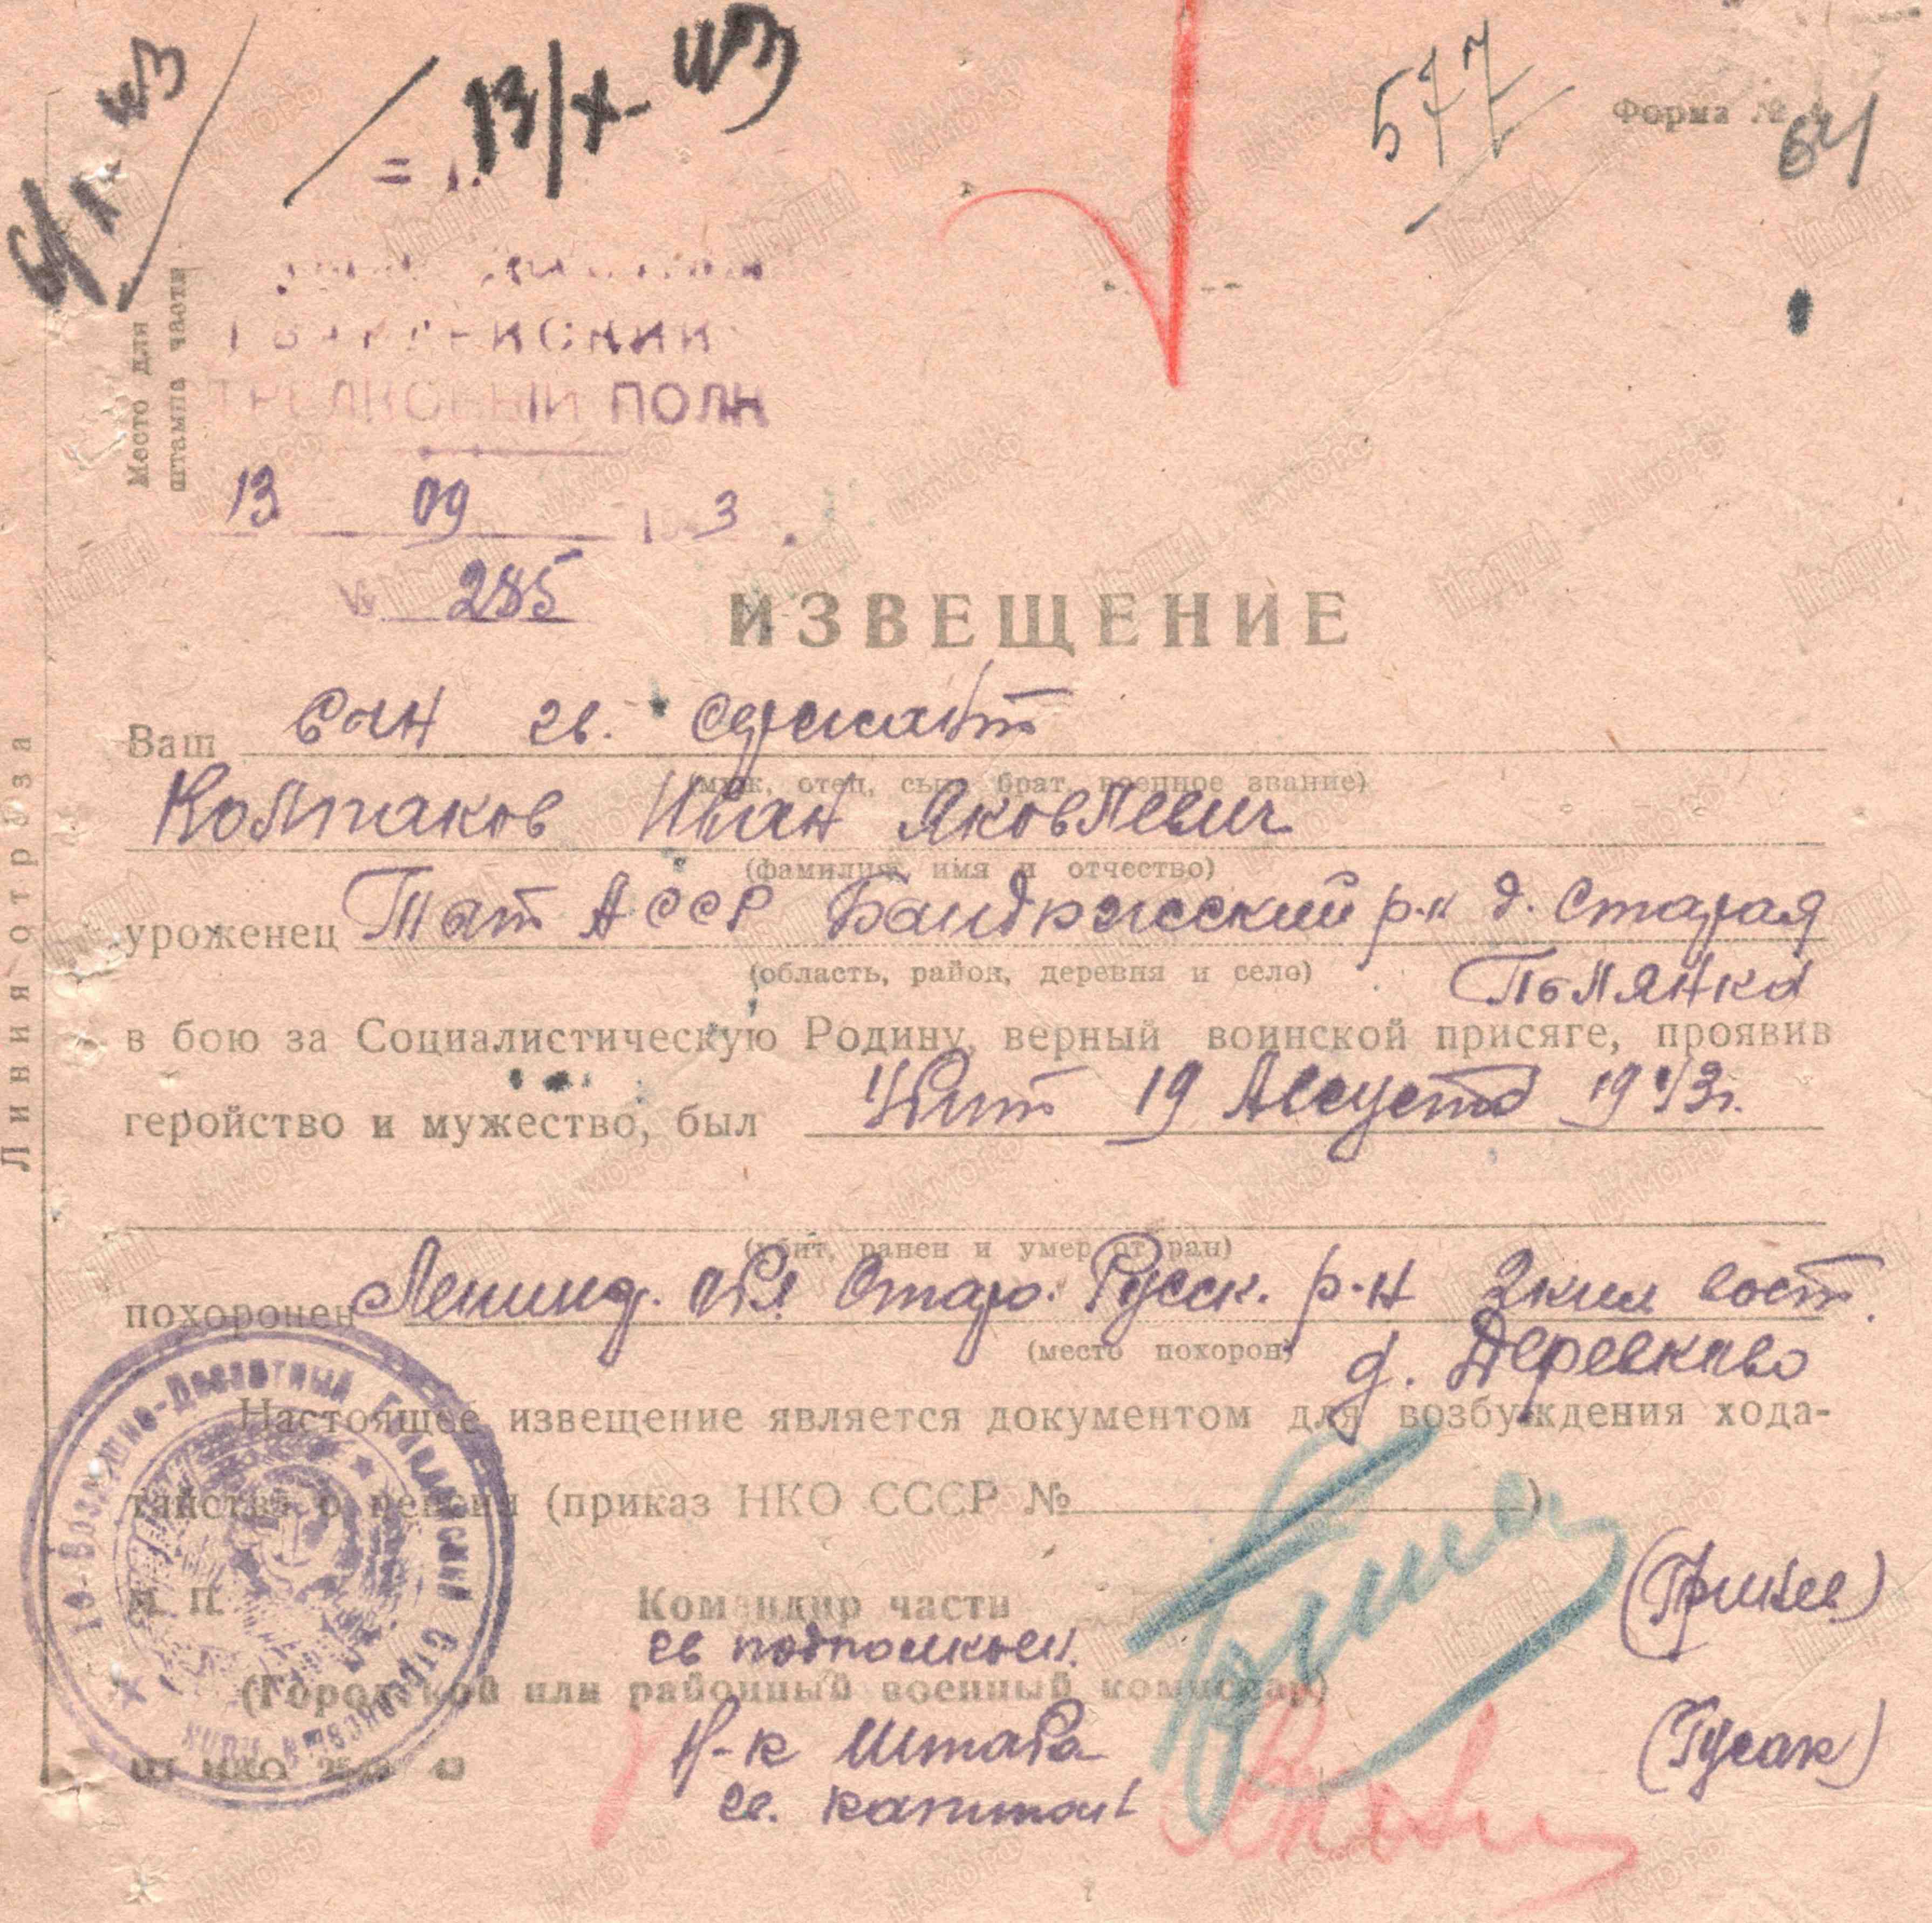 13/X-43
577
Форма №
64
Место для
штампа части
ГВАРДЕЙСКИЙ
СТРЕЛКОВЫЙ ПОЛК
13 09 3
285
ИЗВЕЩЕНИЕ
Ваш сын гв. сержант
(муж, отец, сын, брат, военное звание)
Колпаков Иван Яковлевич
(фамилия, имя и отчество)
уроженец Тат АССР Бандюжский р-н д. Старая
(область, район, деревня и село)
Полянка
в бою за Социалистическую Родину, верный воинской присяге, проявив
геройство и мужество, был Убит 19 Августа 1943г.
(убит, ранен и умер от ран)
похоронен Ленинд. обл. Старо. Русск. р-н 2 клм вост.
(место похорон)
д. Деревково
Настоящее извещение является документом для возбуждения хода-
тайства о пенсии (приказ НКО СССР №)
М П
Командир части
гв подполковн. (Гринев)
(Городской или районный военный комиссар)
Н-к Штаба (Гусак)
гв. капитан
Линия отреза
Воздушно-Десантный Гвардейский Стрелковый полк